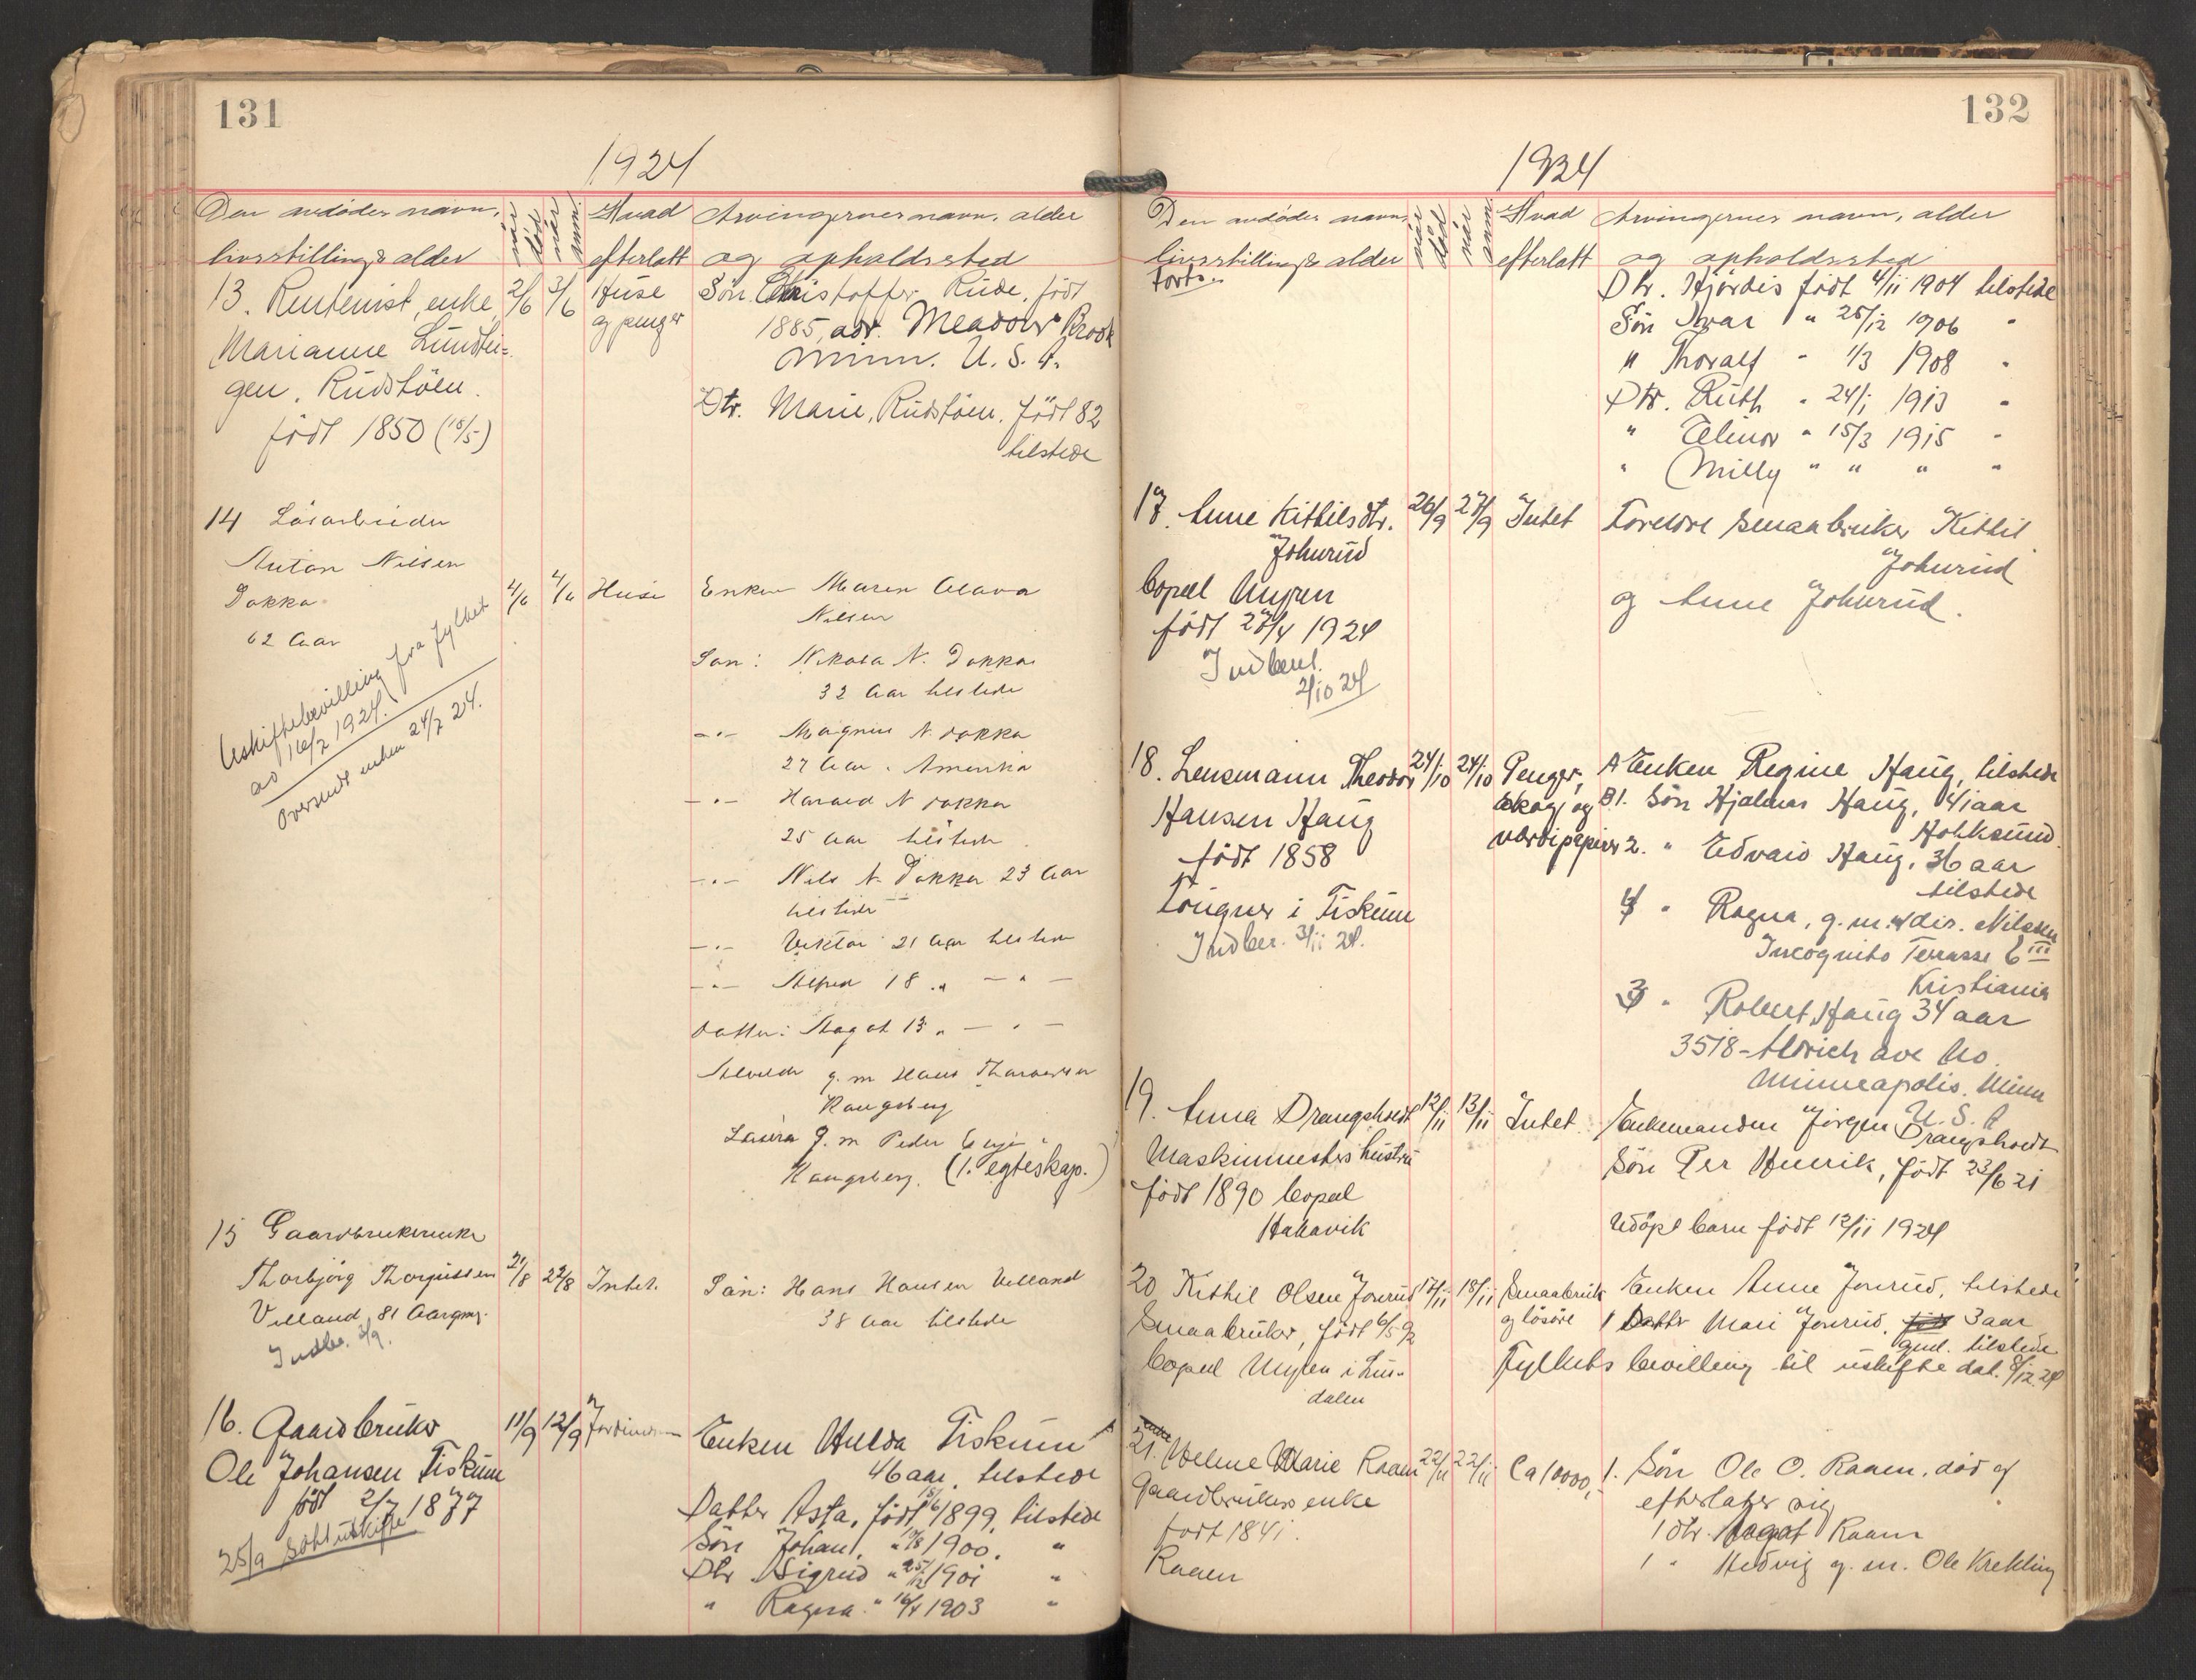 131
1924
Den avdødes navn,
livsstilling & alder
når død
når anm.
Hvad
efterlatt
Arvingernes navn, alder
og opholdssted
13. Rentenist, enke 2/6 3/6 Huse
og penger
Marianne Lundtei=
gen, Rudstöen.
födt 1850 (18/5)
Sön Christoffer Rude, födt
1885, adr. Meadow Brook
Minn. U. S. A.
Dtr. Marie, Rudstöen, födt 82
tilstede
14 Lösarbeider
Anton Nilsen
Dokka 4/6 4/6 Huse
62 Aar
Uskiftebevilling fra fylket
av 16/7 1924.
Oversendt enken 24/7 24.
Enken Maren Olava
Nilsen
Søn: Nikolai N. Dokka
32 Aar tilstede
-"- Magnus N. Dokka
27 Aar. Amerika
-"- Harald N Dokka
25 aar tilstede
-"- Nils N. Dokka 23 Aar
tilstede
-"- Viktor 21 Aar tilstede
-"- Alfred 18 " - " -
Datter: Aagot 13 " - " -
g. m Hans
Kongsberg
Laura g. m Peder
Kongsberg. (1. egteskap.)
15 Gaardbrukerenke
Thorbjørg Thorgussen 21/8 22/8 Intet.
Villand, 81 Aargml.
Indbr. 3/9.
Søn: Hans Hansen Villand
38 Aar tilstede
16. Gaardbruker 11/9 12/9
Ole Johansen Fiskum
födt 2/7 1877
25/9 søkt uskifte
Enken Hulda Fiskum
46 aar, tilstede
Datter Asta, födt 15/6 1899, tilstede
Sön Johan, " 10/8 1900, "
Dtr Sigrid " 25/12 1901 "
" Ragna " 16/4 1903 "
132
1924
Den avdødes navn,
livsstilling & alder
når død
når anm.
Hvad
efterlatt
Arvingernes navn, alder
og opholdssted
Forts.
Dtr. Hjördis födt 4/11 1904 tilstede
Sön Ivar " 25/12 1906 "
" Thoralf " 1/3 1908 "
Dtr. Ruth " 24/1 1913 "
" Elinor " 15/3 1915 "
" Milly " " " "
17. Anne Kittilsdtr. 26/9 27/9 Intet
Johnrud
Copeel Unjen
födt 27/4 1924
Indberl.
2/10 24
Foreldre Smaabruker Kittil
Johnrud
og Anne Johnrud.
18. Lensmann Theodor 24/10 24/10 Penger,
Hansen Haug skog og
födt 1858 verdipapirer
Fougner i Fiskum
Indber. 3/11 24.
A Enken Regine Haug, tilstede
B 1. Sön Hjalmar Haug, 41 aar
Hokksund.
2. " Edvard Haug, 36 aar
tilstede
4 " Ragna, g. m. dir. Nilssen
Incognito Terrasse 6 III
Kristiania
3 " Robert Haug 34 aar
3518 - Aldrich ave No.
Minneapolis. Minn
U. S. A
19. Anna Drangsholdt 12/11 13/11 Intet
Maskinmesters hustru
födt 1890 Copeel
Hakavik
Enkemanden Jörgen Drangsholdt
Sön Per Henrik, födt 23/6 21
Udöpt barn födt 12/11 1924
20 Kittil Olsen Jonrud 17/11 18/11 Smaabruk
og lösöre
Smaabruker, födt 6/5 92
Copeel Unjen i Lur-
dalen
Enken Anne Jonrud, tilstede
1 Datter Mari Jonrud, 3 aar
gml. tilstede
Fylkets bevilling til uskifte dat. 8/12. 24
21. Helene Marie Raaen 22/11 22/11 Ca 10000,-
Gaardbrukers enke
födt 1841.
Raaen
1. Sön Ole O. Raaen, död og
efterlater sig
1 dtr. Aagot Raaen
1 " Hedvig g. m. Ole Krekling